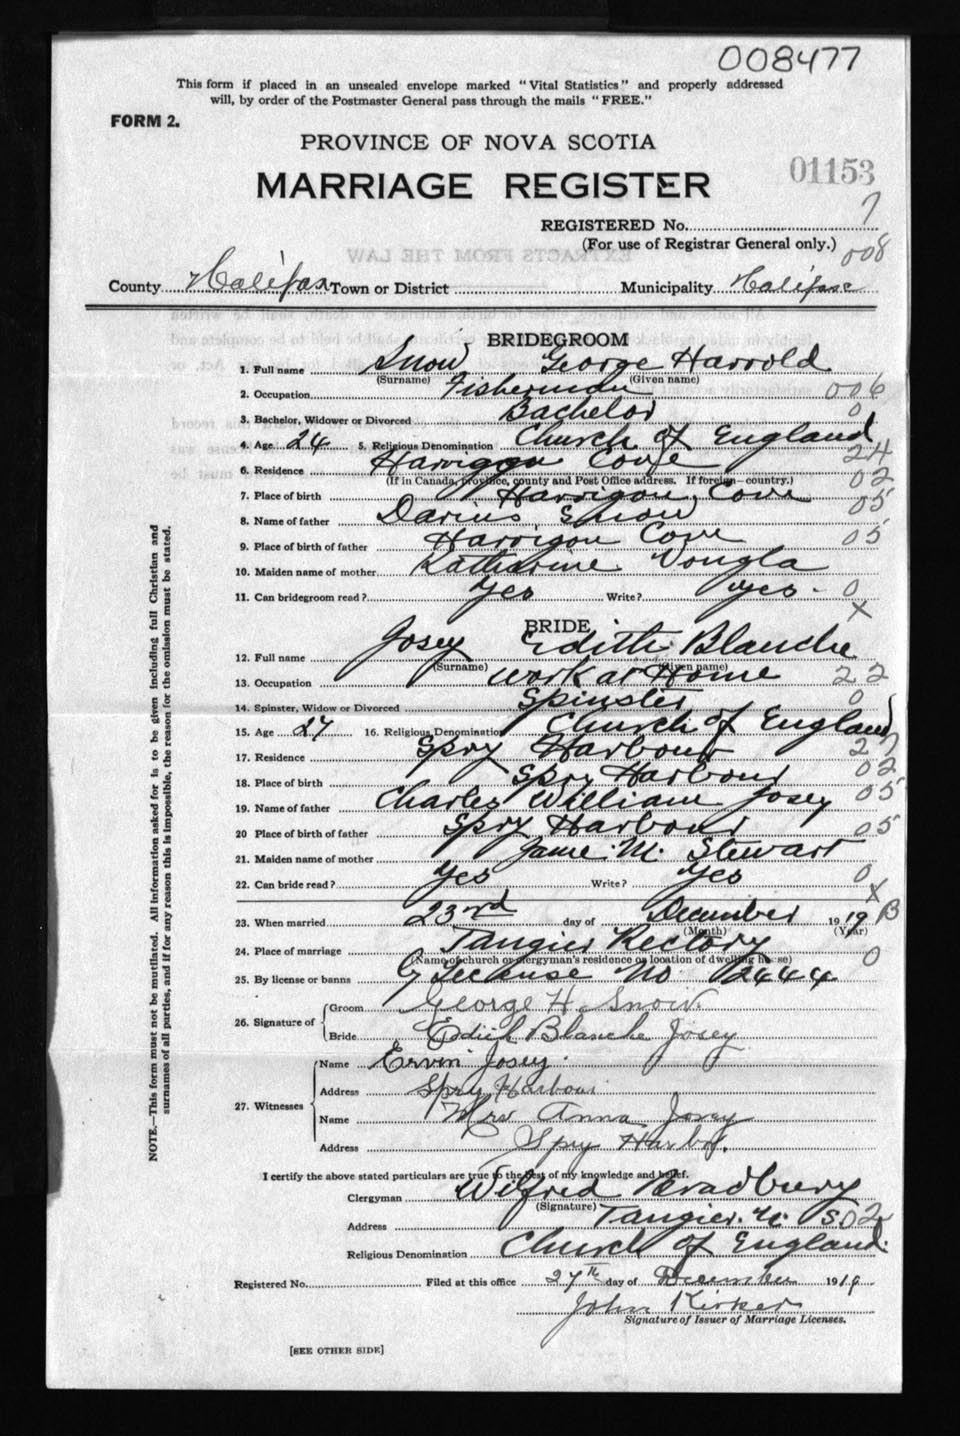 008477
This form if placed in an unsealed envelope marked "Vital Statistics" and properly addressed
will, by order of the Postmaster General pass through the mails "FREE."
FORM 2.
PROVINCE OF NOVA SCOTIA
01153
MARRIAGE REGISTER
REGISTERED No. 7
(For use of Registrar General only.)
008
County Halifax Town or District Municipality Halifax
BRIDEGROOM
1. Full name Snow George Harrold
(Surname) (Given name)
2. Occupation Fisherman 006
3. Bachelor, Widower or Divorced Bachelor 0
4. Age 24 5. Religious Denomination Church of England
6. Residence Harrigan Cove 24
(If in Canada, province, county and Post Office address. If foreign—country.) 02
7. Place of birth Harrigan Cove 05
8. Name of father Darius Snow
9. Place of birth of father Harrigon Cove 05
10. Maiden name of mother Katharine Vougla
11. Can bridegroom read? Yes Write? Yes 0
X
BRIDE
12. Full name Josey Edith Blanche
(Surname) (Given name)
13. Occupation work at Home 22
14. Spinster, Widow or Divorced Spinster 0
15. Age 27 16. Religious Denomination Church of England
17. Residence Spry Harbour 27
02
18. Place of birth Spry Harbour 05
19. Name of father Charles William Josey
20 Place of birth of father Spry Harbour 05
21. Maiden name of mother Janie M. Stewart
22. Can bride read? Yes Write? Yes 0
X
23. When married 23rd day of December 1919 B
(Month) (Year)
24. Place of marriage Tangier Rectory 0
(Name of church or clergyman's residence or location of dwelling house)
25. By license or banns By License No 12444
26. Signature of Groom George H. Snow
Bride Edith Blanche Josey
27. Witnesses Name Ervin Josey
Address Spry Harbour
Name Mrs Anna Josey
Address Spry Harbor.
I certify the above stated particulars are true to the best of my knowledge and belief.
Clergyman Wilfred Bradbury
(Signature)
Address Tangier. N. S. 02
Religious Denomination Church of England.
Registered No. Filed at this office 27th day of December 1919
John Kirker
Signature of Issuer of Marriage Licenses.
[SEE OTHER SIDE]
NOTE.—This form must not be mutilated. All information asked for is to be given including full Christian and
surnames of all parties, and if for any reason this is impossible, the reason for the omission must be stated.